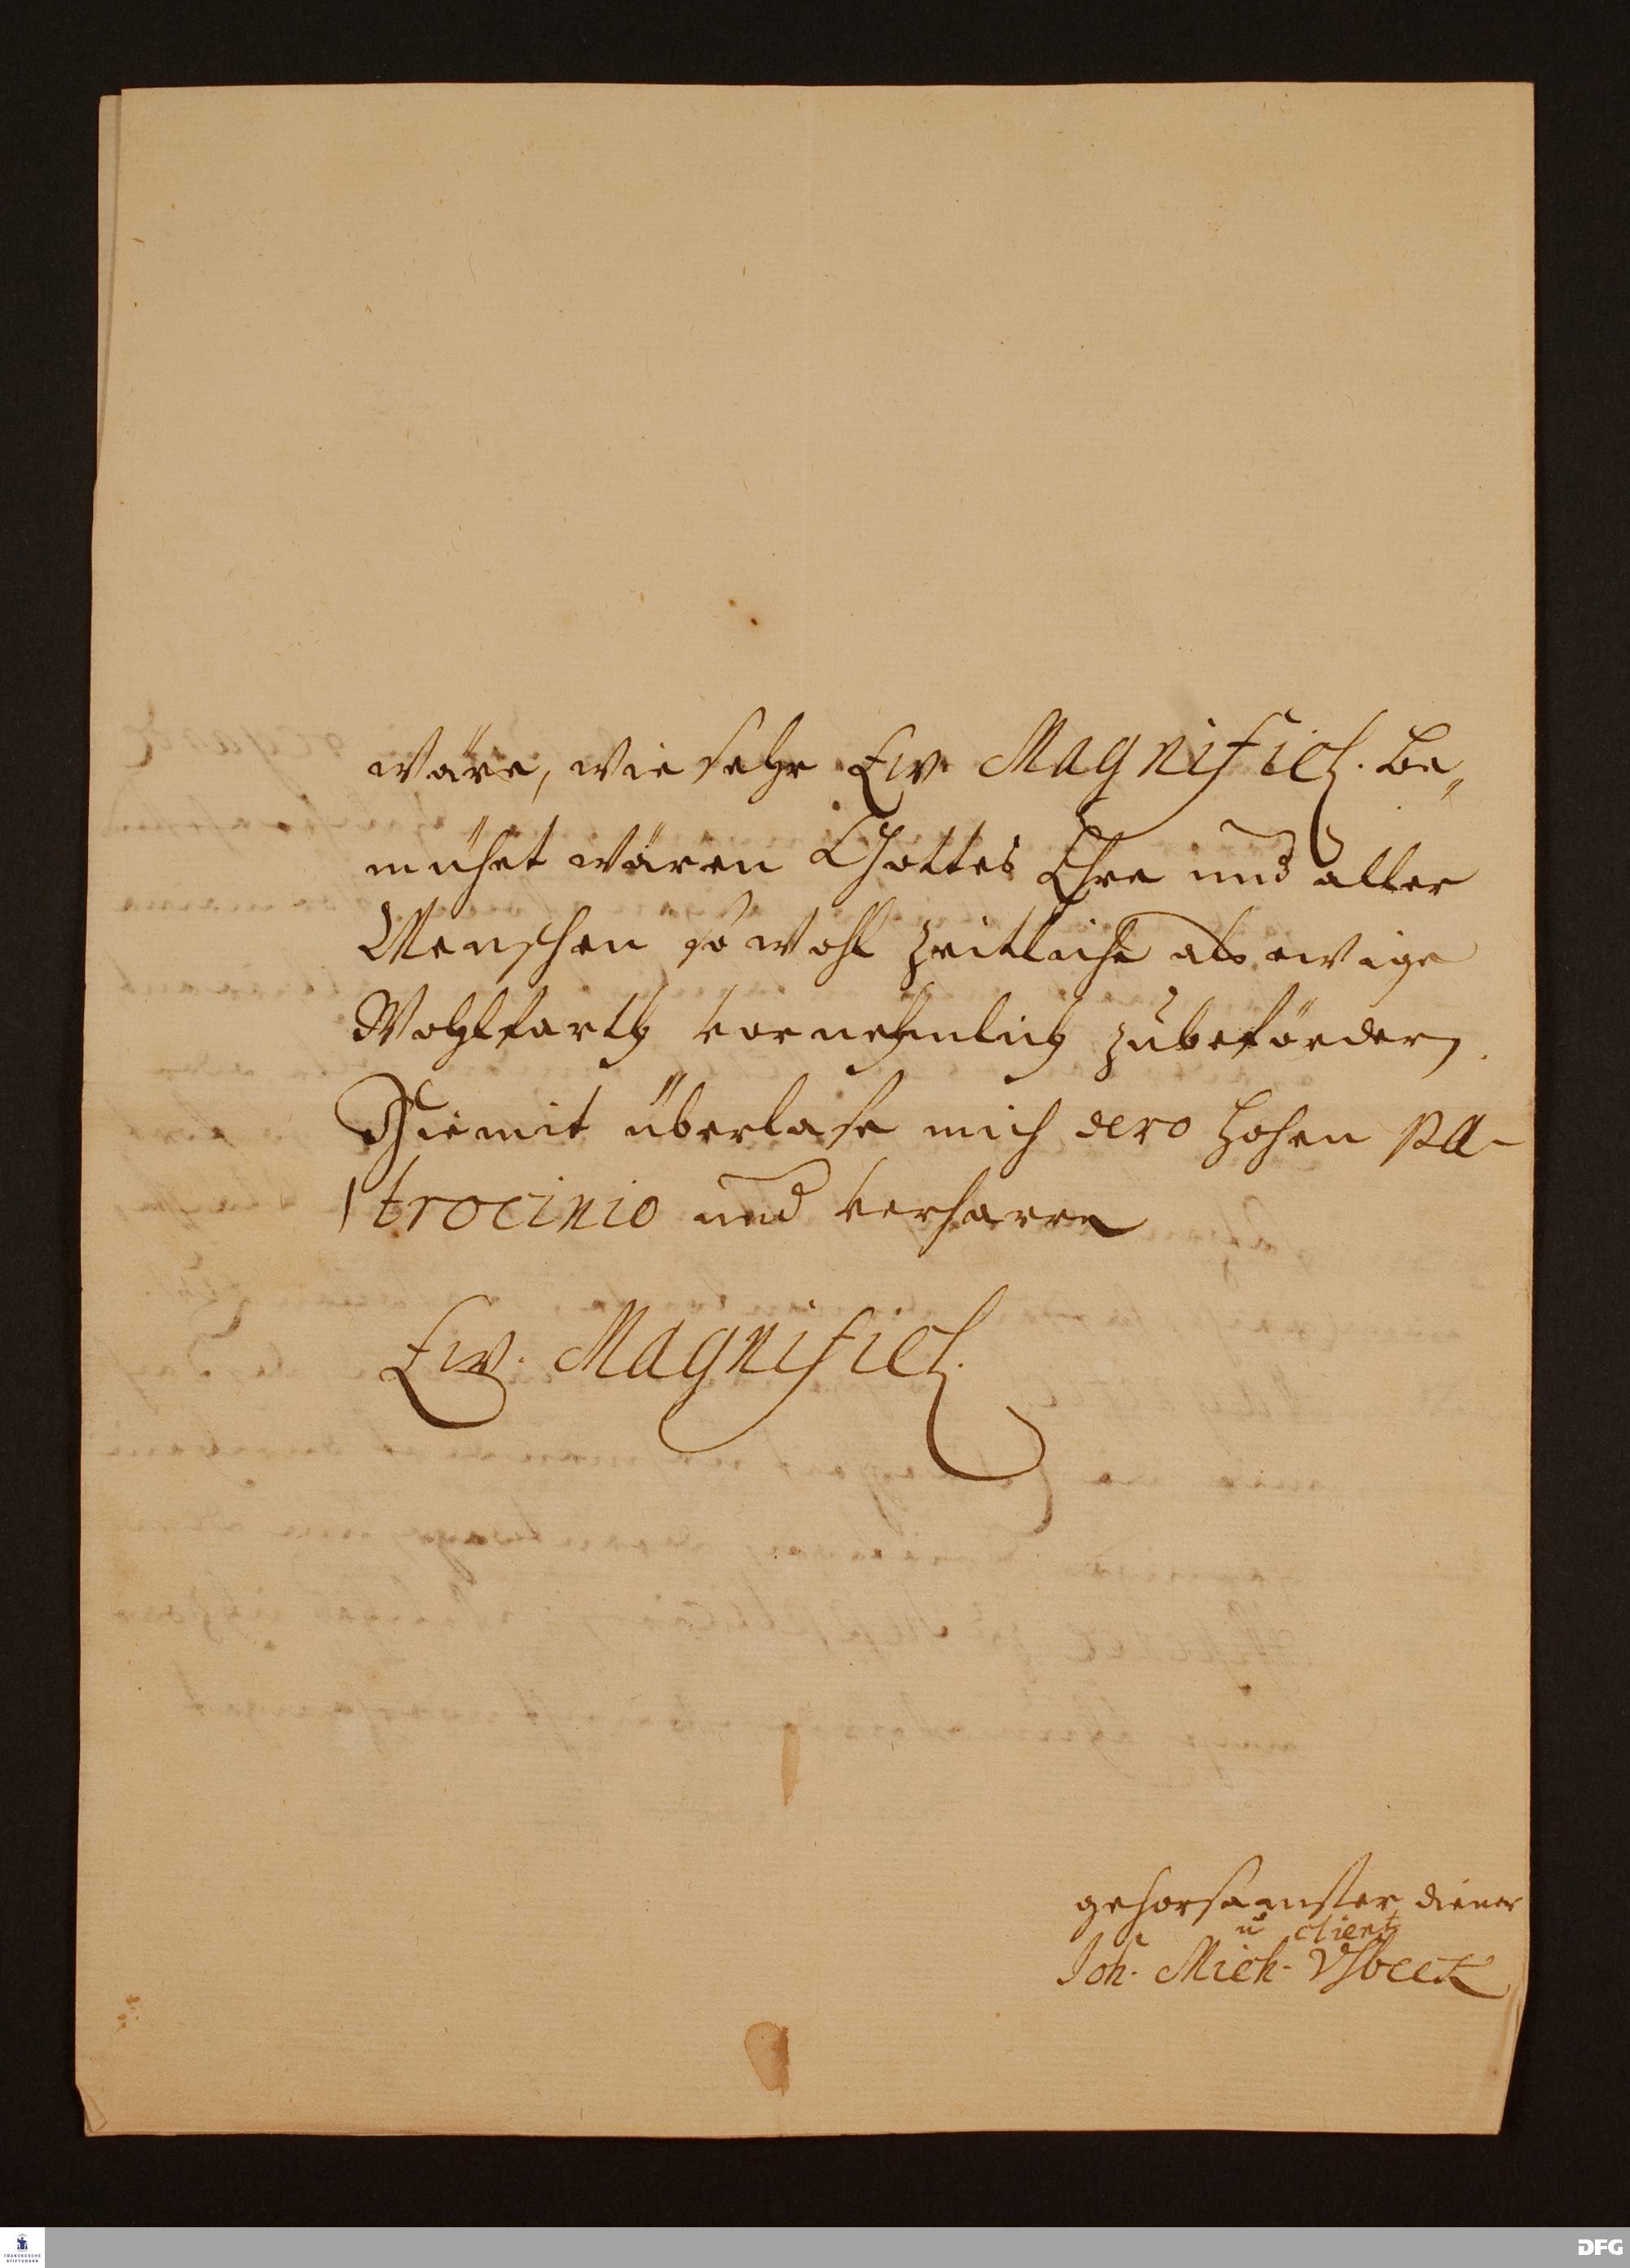 wäre, wie sehr Ew. Magnificz. be„
mühet wären Gottes Ehre und aller
Menschen so wohl zeitliche als ewige
Wohlfarth vornehmlich zubefördern.
Hiemit überlaße mich dero hohen pa-
trocinio und verharre
Ew. Magnificz.
gehorsamster diener
u. client
Joh. Mich. Vsbeck
FRANCKESCHE
STIFTUNGEN
DFG